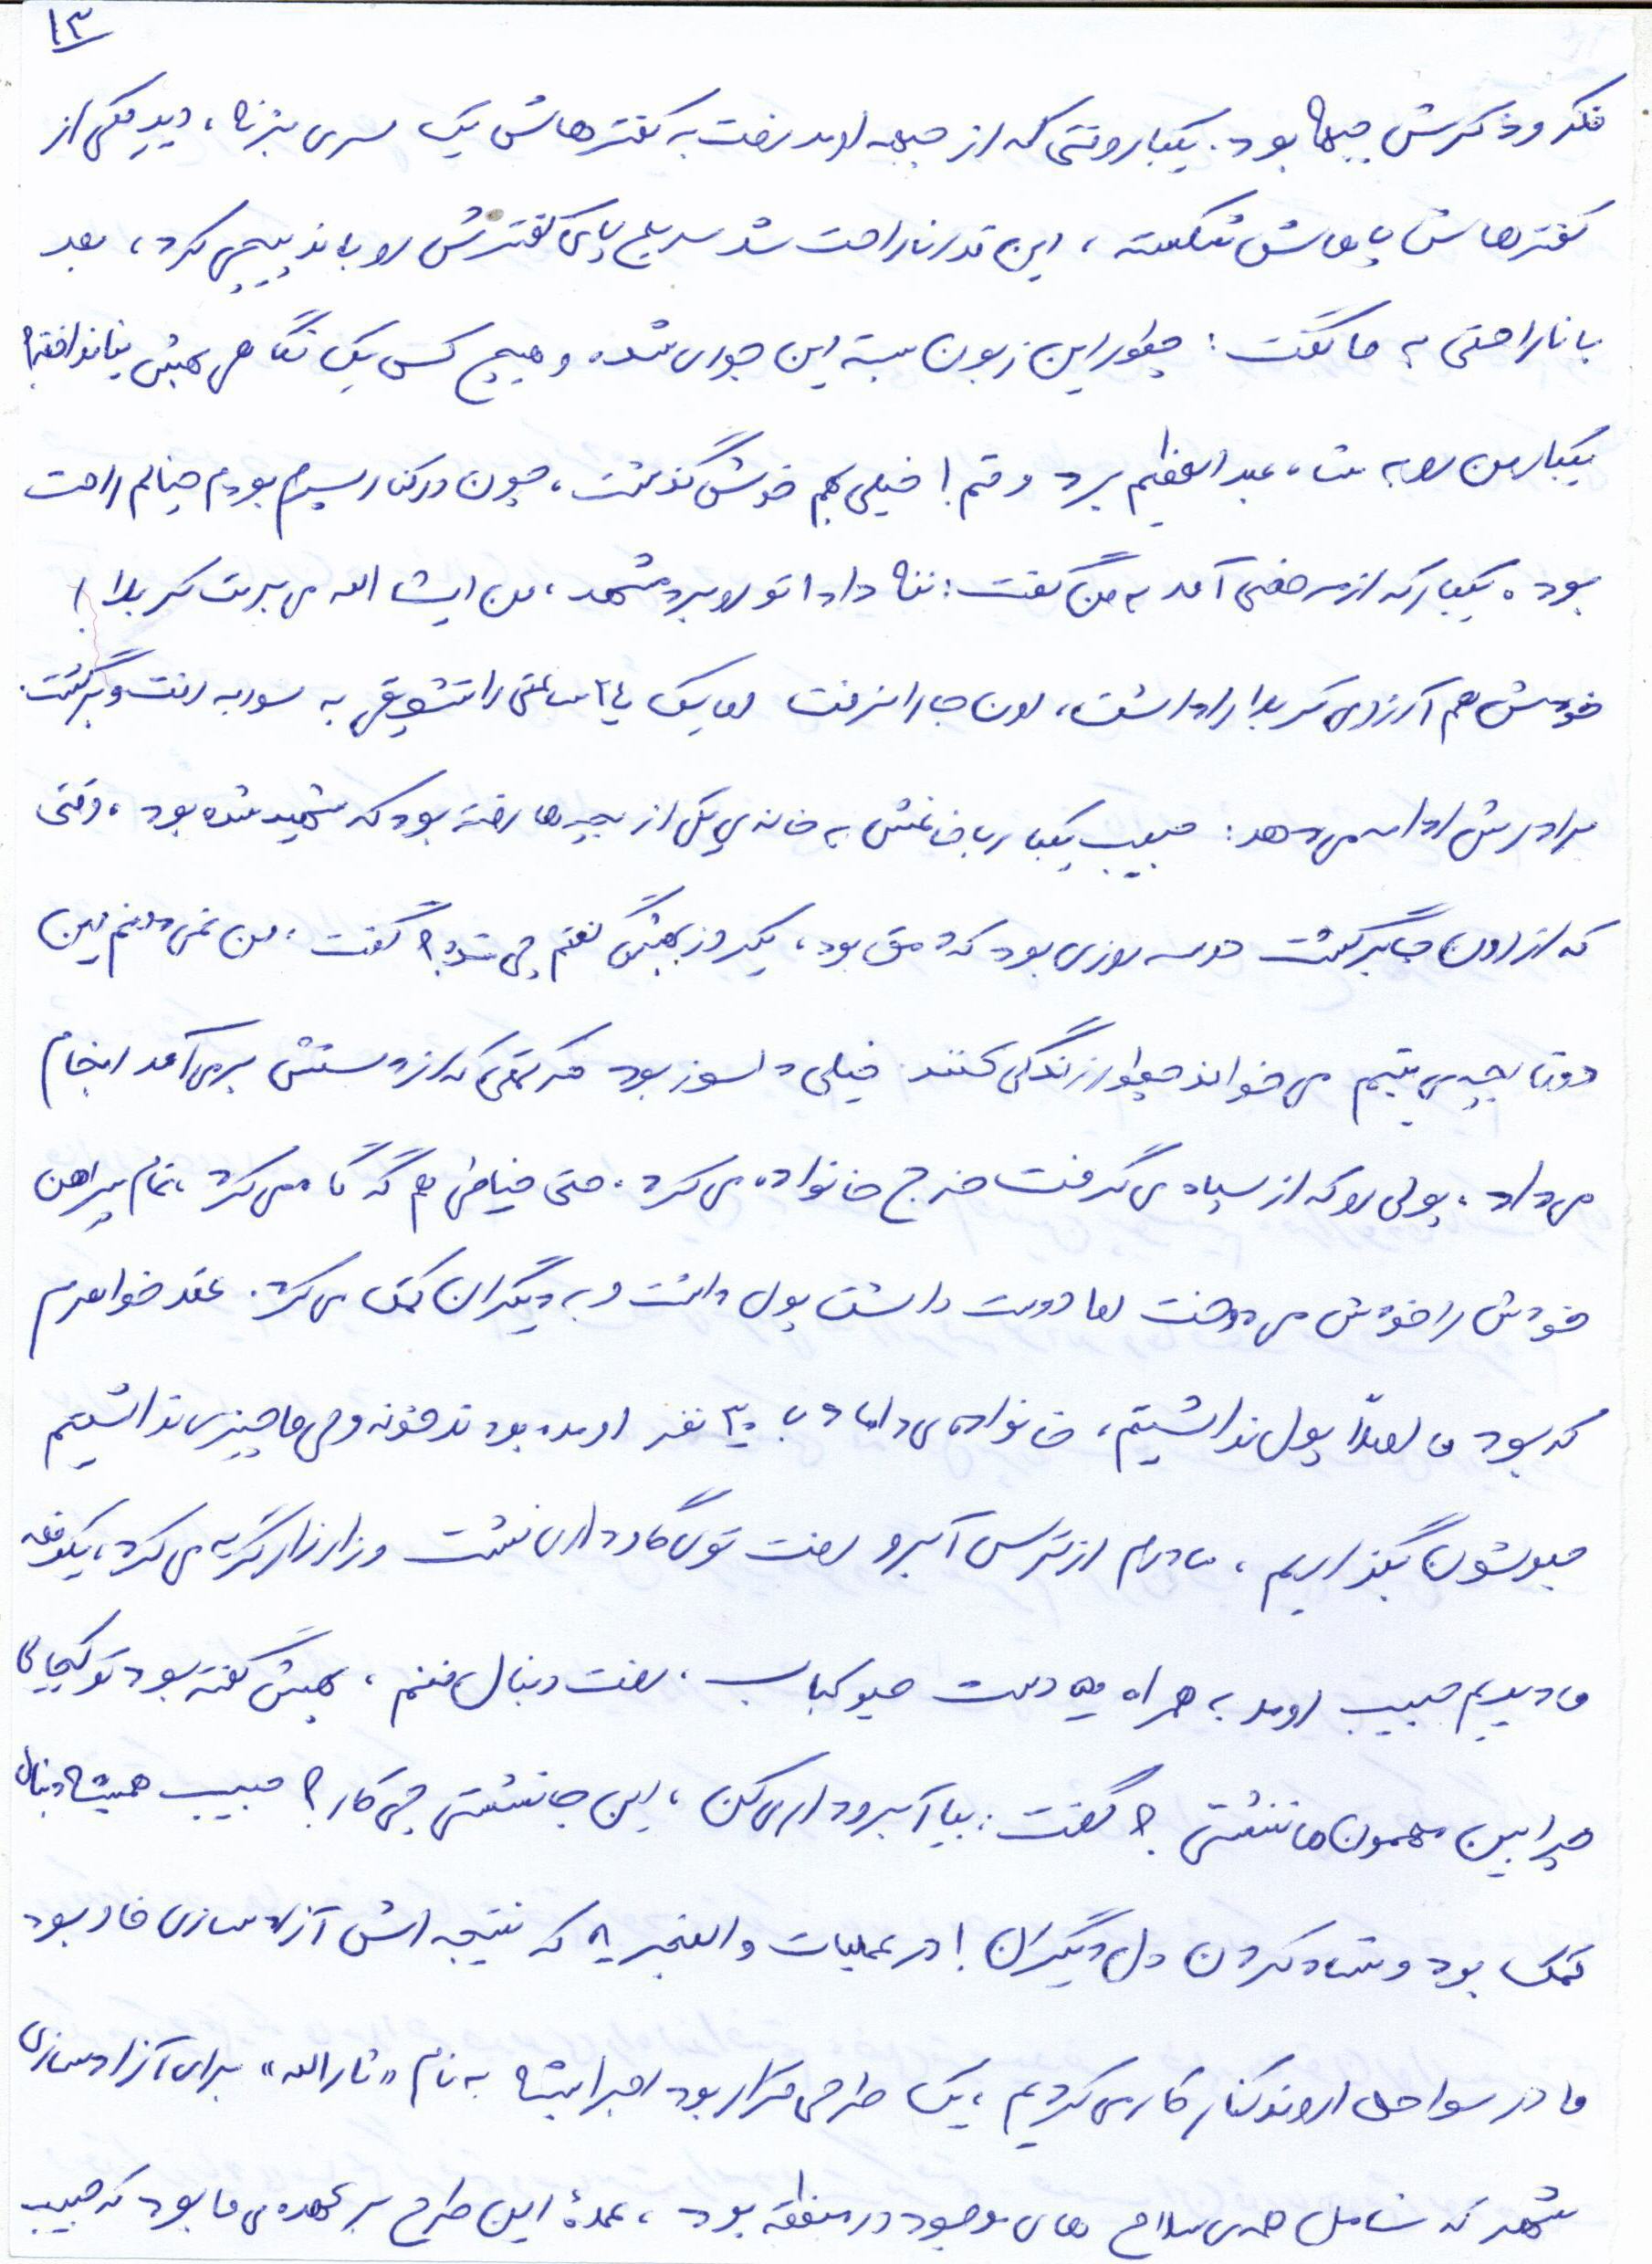 ۱۳
فکر و ذکرش جبهه بود. یکبار وقتی که از جبهه اومد رفت به کفترهاش یک سری بزنه، دید یکی از
کفترهاش پاهاش شکسته، این قدر ناراحت شد سریع پای کفترش رو باندپیچی کرد، بعد
با ناراحتی به ما گفت: چطور این زبون بسته این جوری شده و هیچ کس یک نگاهی بهش نینداخته؟
یکبار من رو به شاه عبدالعظیم برد و قم! خیلی بهم خوش گذشت، چون در کنار پسرم بودم خیالم راحت
بود. یکبار که از مرخصی آمد به من گفت: ننه دادا تو رو برد مشهد، من ایشا الله می برمت کربلا!
خودش هم آرزوی کربلا را داشت، اون جا را نرفت اما یک یا ۲ ساعتی را تشویقی به سوریه رفت و برگشت.
برادرش ادامه می دهد: حبیب یکبار با خانمش به خانه ی یکی از بچه ها رفته بود که شهید شده بود، وقتی
که از اون جا برگشت دو سه روزی بود که دمق بود، یکروز بهش گفتم چی شده؟ گفت: من نمی دونم این
دوتا بچه ی یتیم می خواند چطور زندگی کنند. خیلی دلسوز بود هر کمکی که از دستش برمی آمد انجام
می داد، پولی رو که از سپاه می گرفت خرج خانواده می کرد. حتی خیاطی هم گه گاه می کرد، تمام پیراهن
خودش را خودش می دوخت اما دوست داشت پول داشت و به دیگران کمک می کرد. عقد خواهرم
که بود ما اصلاً پول نداشتیم، خانواده ی داماد با ۳۰ نفر اومده بودند خونه ولی ما چیزی نداشتیم
جلوشون بگذاریم، مادرم از ترس آبرو رفت توی گاوداری نشست و زار زار گریه می کرد، یکدفعه
ما دیدیم حبیب اومد به همراه یه دست چلو کباب. رفت دنبال ننم، بهش گفته بود تو کجایی
چرا بین مهمون ها ننشتی؟ گفت: بیا آبروداری کن، این جا نشستی چی کار؟ حبیب همیشه دنبال
کمک بود و شاد کردن دل دیگران! در عملیات والفجر ۸ که نتیجه اش آزادسازی فاو بود
ما در سواحل اروندکنار کار می کردیم، یک طرحی قرار بود اجرا بشه به نام «ثارالله» برای آزادسازی
شهر که شامل همه ی سلاح های موجود در منطقه بود، عمدهٔ این طرح بر عهده ی ما بود که حبیب